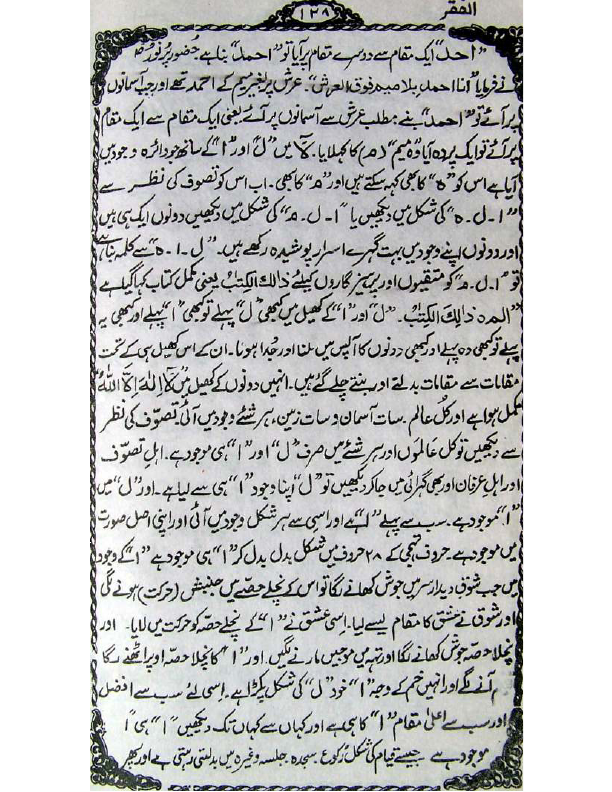 الفقر
۱۳۸
"احد" ایک مقام سے دوسرے مقام پر آیا تو "احمد" بنا ہے حضور پُر نور
نے فرمایا "انا احمد بلا میم فوق العرش"۔ عرش پر بغیر میم کے احمد تھے اور جب آسمانوں
پر آئے تو "احمد" بنے مطلب عرش سے آسمانوں پر آئے یعنی ایک مقام سے ایک مقام
پر آئے تو ایک پردہ آیا وہ میم" (م) کا کہلایا۔ لا میں "ل" اور "ا" کے ساتھ جو دائرہ وجود میں
آیا ہے اس کو "ہ" کا بھی کہہ سکتے ہیں اور "م" کا بھی۔ اب اس کو تصوف کی نظر سے
"ا - ل - ہ" کی شکل میں دیکھیں یا "ا - ل - م" کی شکل میں دیکھیں دونوں ایک ہی ہیں
اور دونوں اپنے وجود میں بہت گہرے اسرار پوشیدہ رکھے ہیں۔ "ل - ا - ہ" سے کلمہ بنا ہے
تو "ا - ل - م" کو متقیوں اور پرہیز گاروں کیلئے ذالک الکتٰبُ یعنی مکمل کتاب کہا گیا ہے
"المہ ذالک الکتٰبُ۔ "ل" اور "ا" کے کھیل میں کبھی "ل" پہلے تو کبھی "ا" پہلے اور کبھی یہ
پہلے تو کبھی وہ پہلے اور کبھی دونوں کا آپس میں ملنا اور جُدا ہونا۔ ان کے اس کھیل ہی کے تحت
مقامات سے مقامات بدلتے اور بنتے چلے گئے ہیں۔ انہیں دونوں کے کھیل میں لَآ اِلٰہَ اِلَّا اللّٰہُ
مکمل ہوا ہے اور کل عالم۔ سات آسمان و سات زمین، ہر شئے وجود میں آئی تصوّف کی نظر
سے دیکھیں تو کل عالموں اور ہر شئے میں صرف "ل" اور "ا" ہی موجود ہے۔ اہلِ تصوّف
اور اہلِ عرفان اور بھی گہرائی میں جا کر دیکھیں تو "ل" اپنا وجود "ا" ہی سے لیا ہے۔ اور "ل" میں
"ا" موجود ہے۔ سب سے پہلے "ا" ہے اور اسی سے ہر شکل وجود میں آئی اور اپنی اصل صورت
میں موجود ہے۔ حروف تہجی کے ۲۸ حروف میں شکل بدل بدل کر "ا" ہی موجود ہے "ا" کے وجود
میں جب شوقِ دیدار سر میں جوش کھانے لگا تو اس کے نچلے حصّہ میں جنبش (حرکت) ہونے لگی
اور شوق نے عشق کا مقام لے لیا۔ اسی عشق نے "ا" کے نچلے حصّہ کو حرکت میں لایا۔ اور
نچلا حصّہ جوش کھانے لگا اور تہہ میں موجیں مارنے لگیں۔ اور "ا" کا نچلا حصّہ اوپر اٹھنے لگا
آنے لگے اور انہیں خم کے وجہ "ا" خود "ل" کی شکل پکڑا ہے۔ اسی لئے سب سے افضل
اور سب سے اعلیٰ مقام "ا" کا ہی ہے اور کہاں سے کہاں تک دیکھیں "ا" ہی "ا"
موجود ہے جیسے قیام کی شکل رکوع، سجدہ، جلسہ وغیرہ میں بدلتی رہتی ہے اور پھر